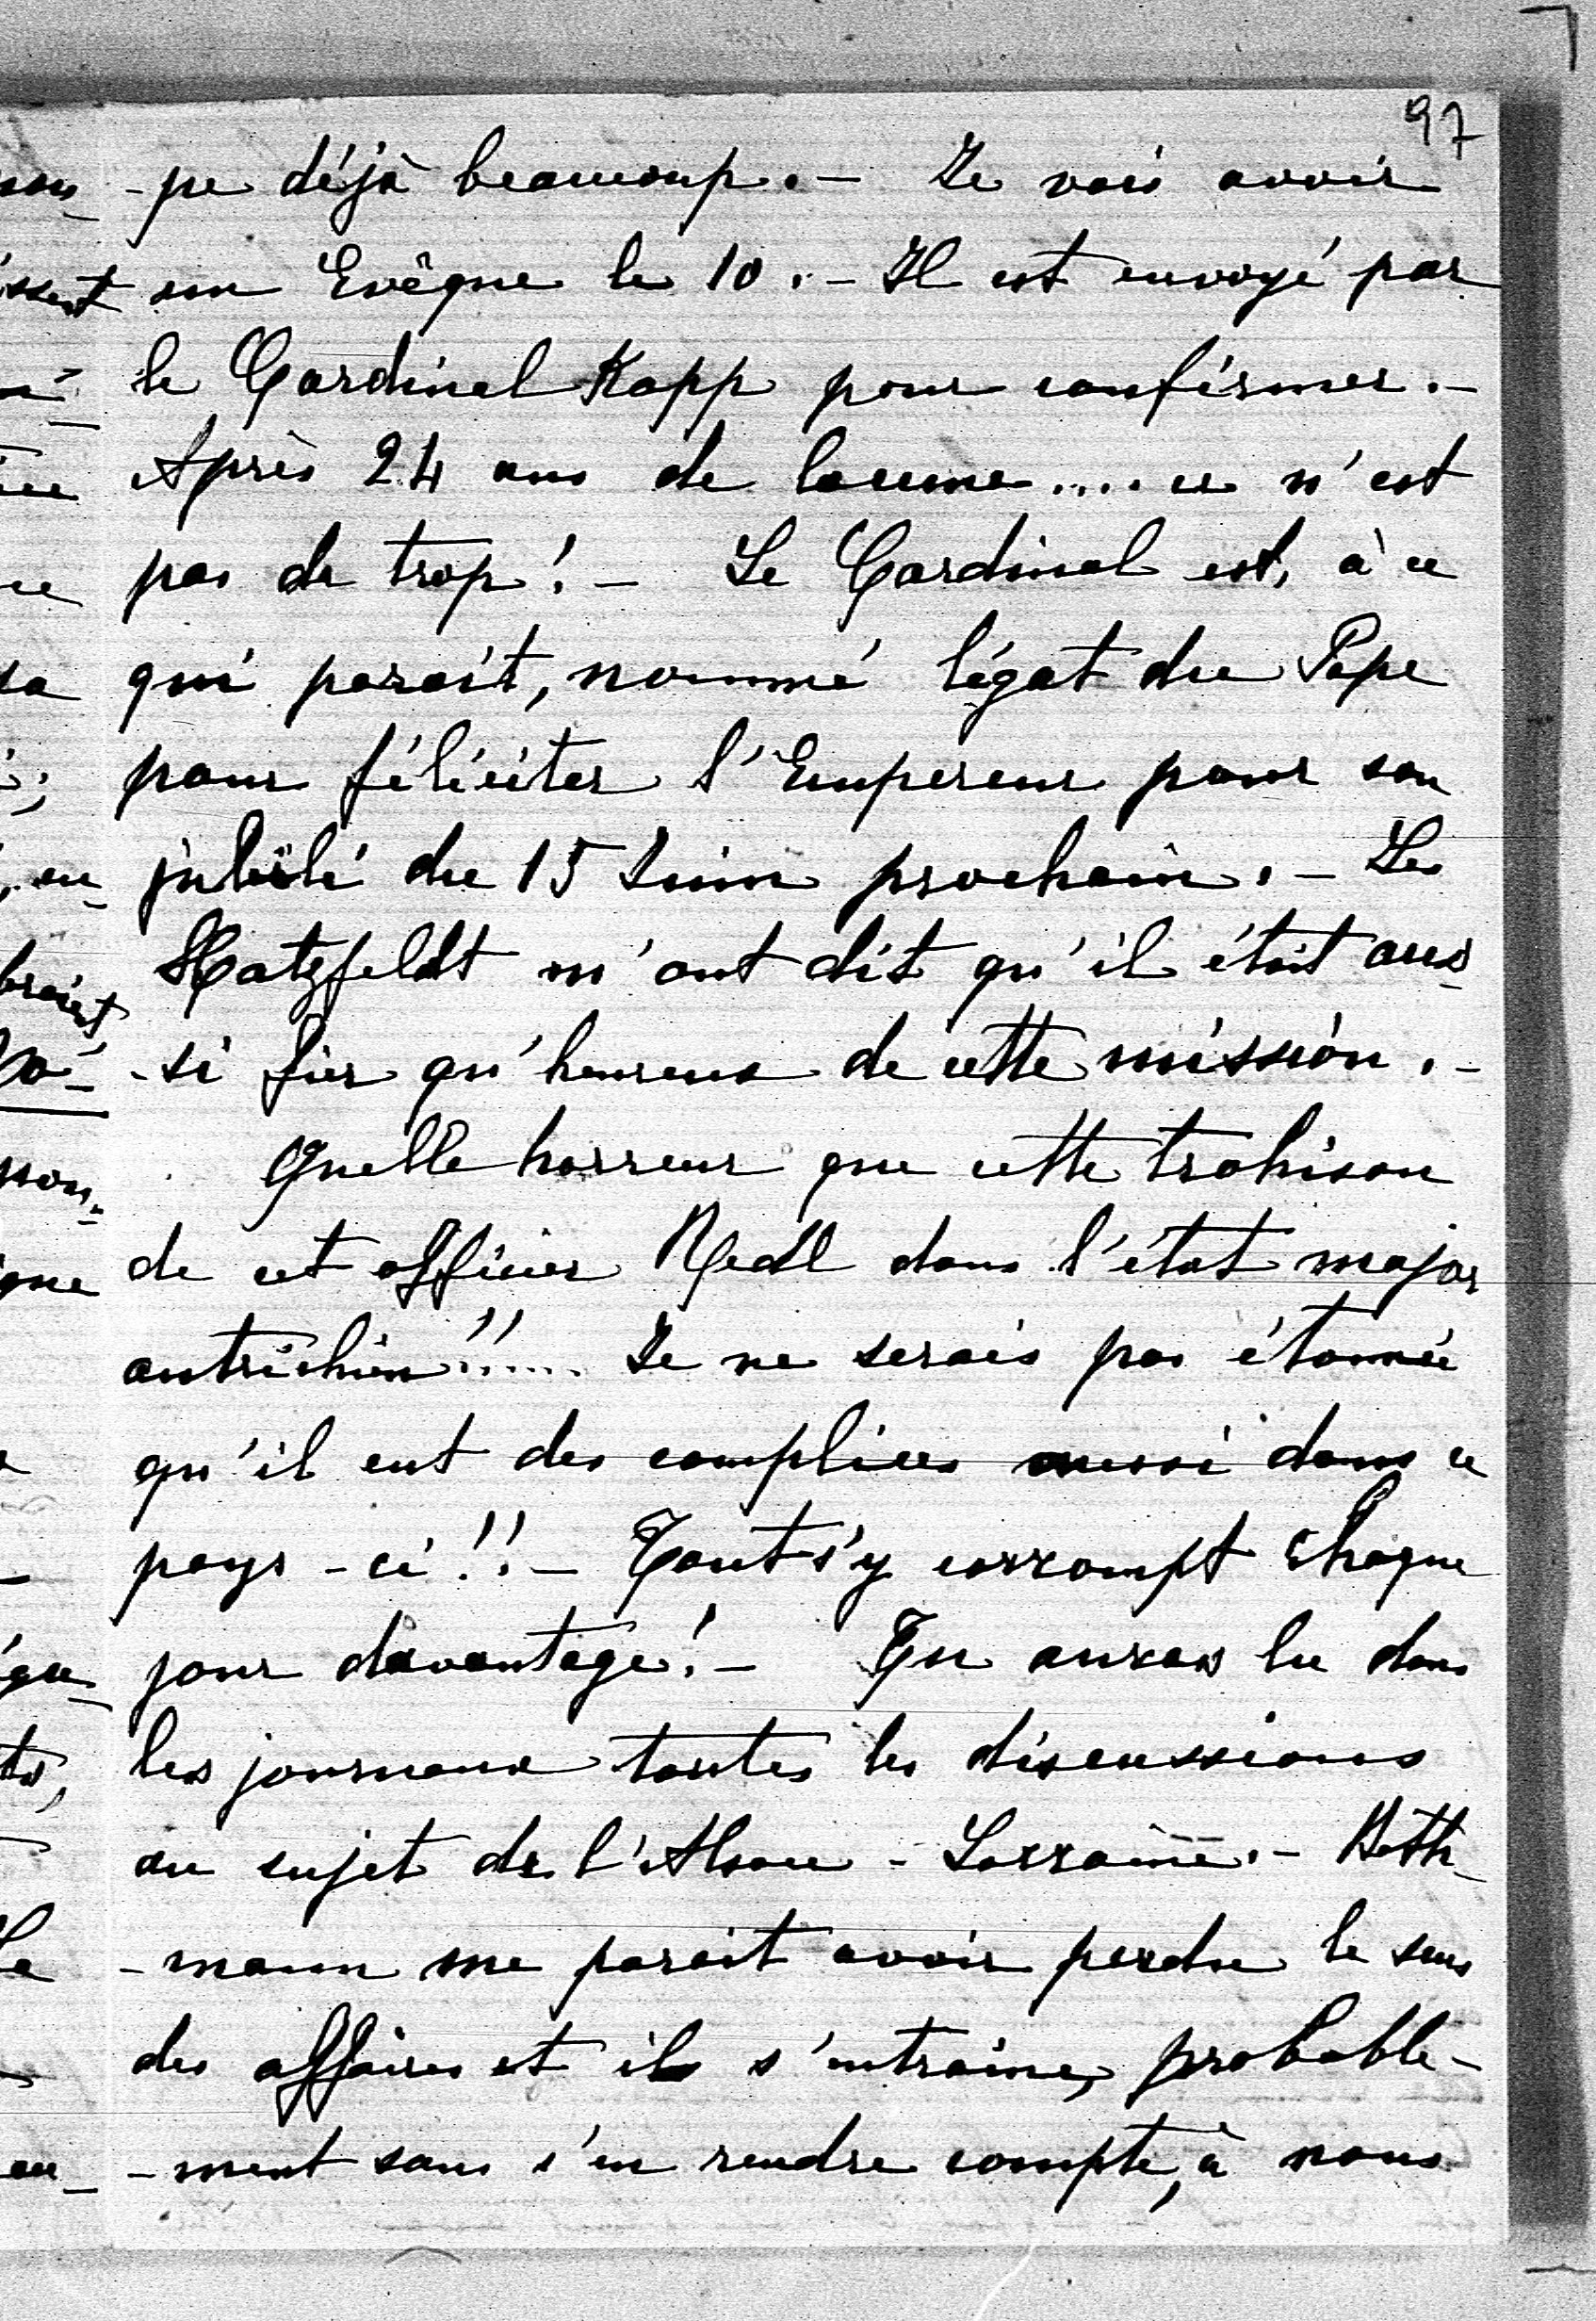 97
-pe déjà beaucoup. - Je vais avoir
un Evêque le 10. - Il est envoyé par
le Cardinal Kopp pour confirmer. -
Après 24 ans de lacune.... ce n'est
pas de trop! - Le Cardinal est, à ce
qui parait, nommé légat du Pape
pour féliciter l'Empereur pour son
jubilé du 15 Juin prochain. - Les
Hatzfeldt m'ont dit qu'il était aus-
-si fier qu'heureux de cette mission. -
Quelle horreur que cette trahison
de cet officier Redl dans l'état major
autrichien!!..... Je ne serais pas étonnée
qu'il eut des complices aussi dans ce
pays-ci!! - Tout s'y corrompt chaque
jour davantage! - Tu auras lu dans
les journaux toutes les discussions
au sujet de l'Alsace-Lorraine. - Beth-
-mann me parait avoir perdu le sens
des affaires et il s'entraine, probable-
-ment sans s'en rendre compte, à nous